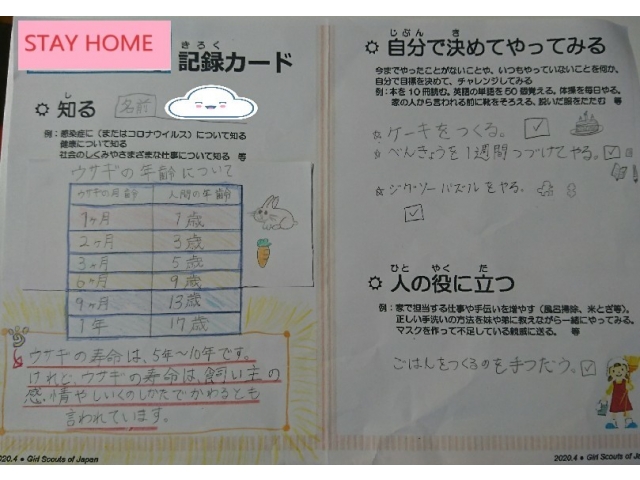 STAY HOME
きろく
記録カード
し
知る
名前
例：感染症に（またはコロナウイルス）について知る
健康について知る
社会のしくみやさまざまな仕事について知る　等
ウサギの年齢について
ウサギの月齢　人間の年齢
1ヶ月　1歳
2ヶ月　3歳
3ヶ月　5歳
6ヶ月　9歳
9ヶ月　13歳
1年　17歳
ウサギの寿命は、5年〜10年です。
けれど、ウサギの寿命は、飼い主の
感情やしいくのしかたでかわるとも
言われています。
2020.4 ● Girl Scouts of Japan
じぶん　き
自分で決めてやってみる
今までやったことがないことや、いつもやっていないことを何か、
自分で目標を決めて、チャレンジしてみる
例：本を10冊読む。英語の単語を50個覚える。体操を毎日やる。
家の人から言われる前に靴をそろえる、脱いだ服をたたむ　等
☆ケーキをつくる。☑
☆べんきょうを1週間つづけてやる。☑
☆ジグソーパズルをやる。
☑
ひと　やく　た
人の役に立つ
例：家で担当する仕事や手伝いを増やす（風呂掃除、米とぎ等）。
正しい手洗いの方法を妹や弟に教えながら一緒にやってみる。
マスクを作って不足している親戚に送る。　等
ごはんをつくるのを手つだう。☑
2020.4 ● Girl Scouts of Ja